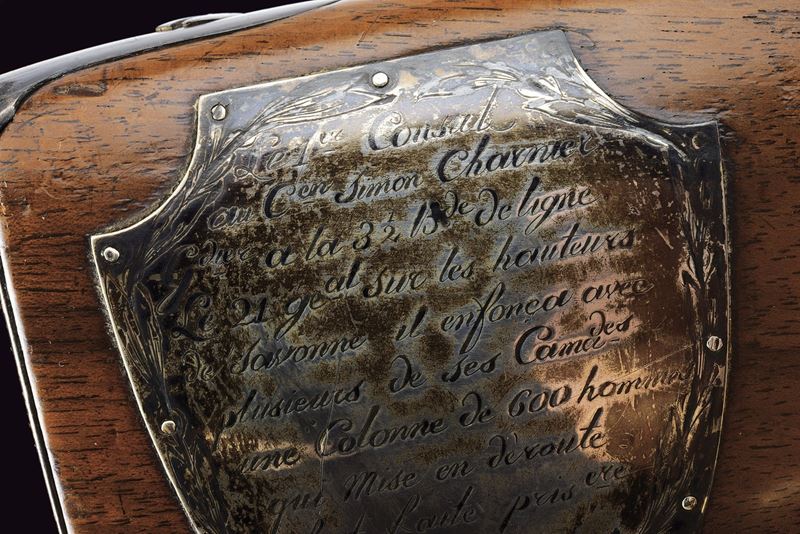 Le 1er Consul
au Cen Simon Charnier
dier a la 3 1/2 B de de ligne
Le 21 geal sur les hauteurs
de Savonne il enfonça avec
plusieurs de ses Camdes
une Colonne de 600 hommes
qui Mise en déroute
faite pris